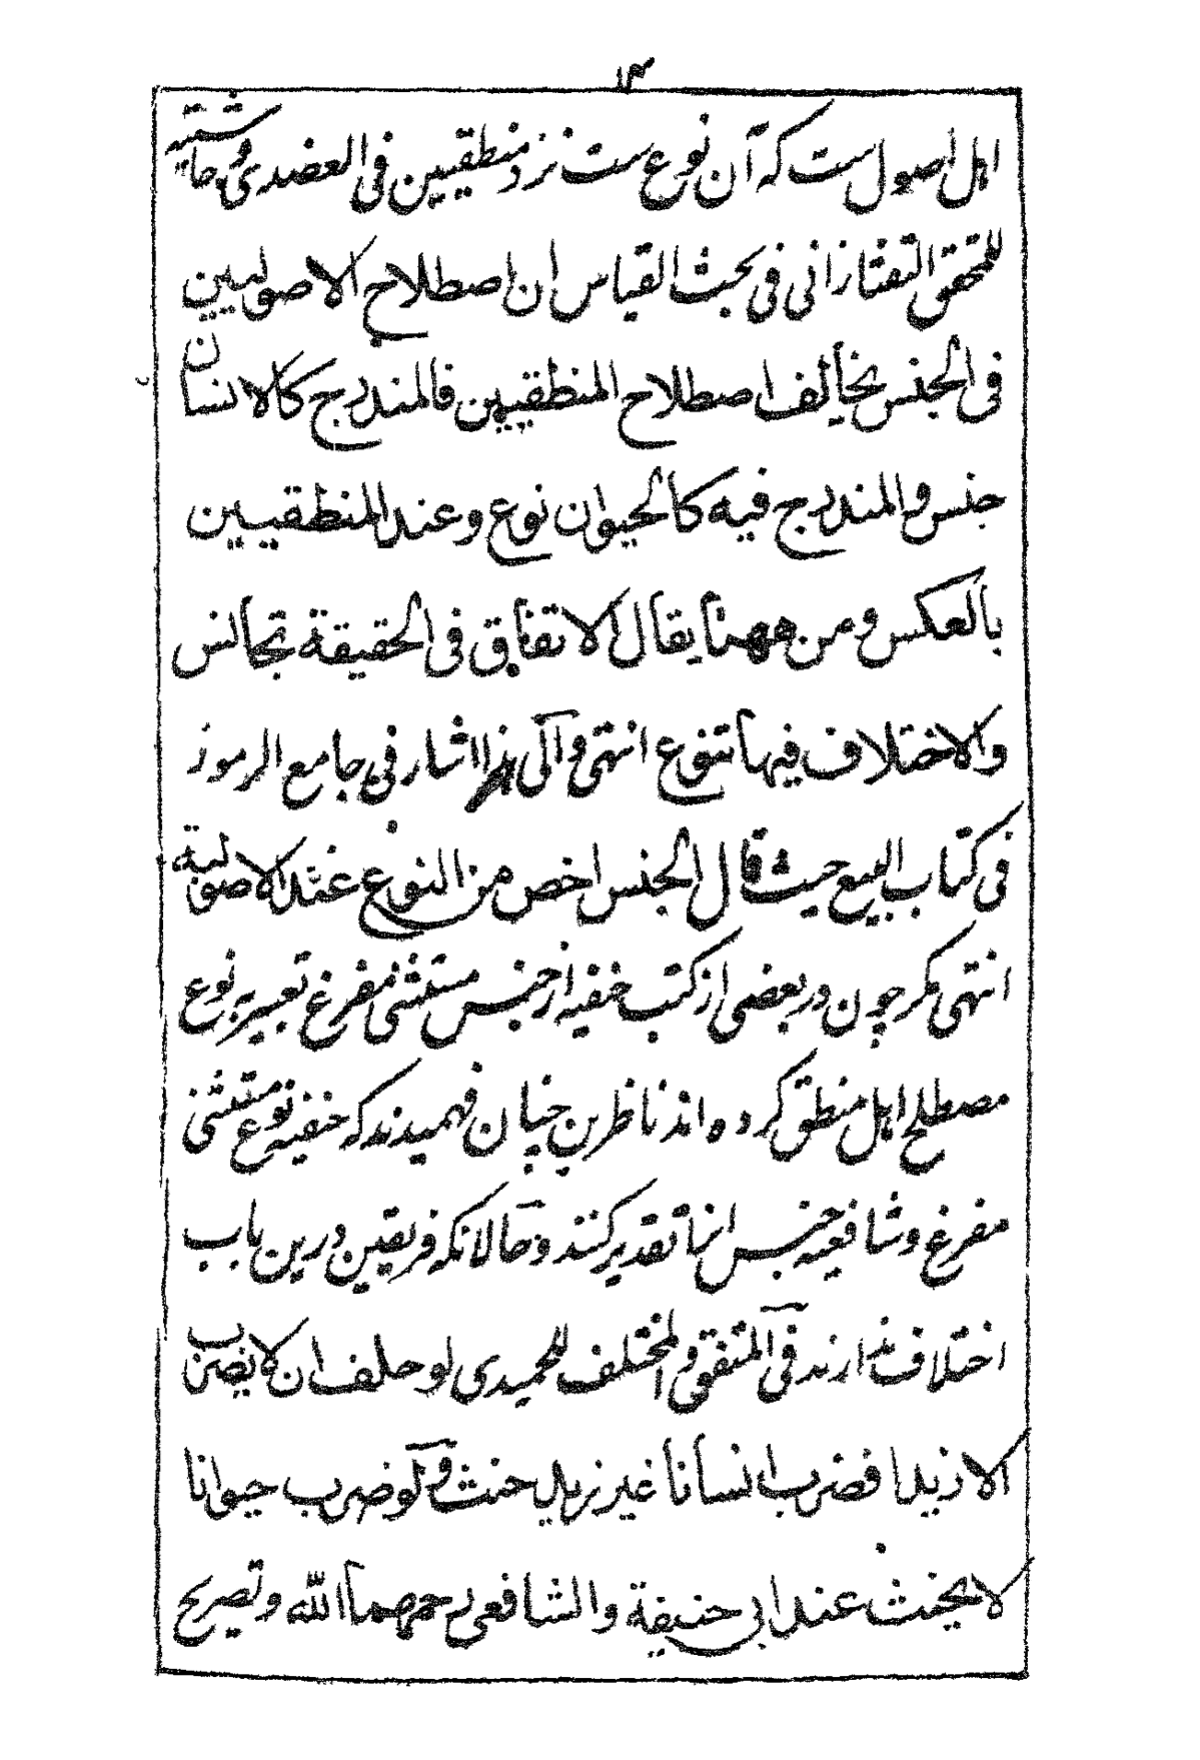 ۱۳
اہل اصول ست کہ آن نوع ست نزد منطقیین فی العضدی وحاشیته
للمحقق التفتازانی فی بحث القیاس ان اصطلاح الاصولیین
فی الجنس یخالف اصطلاح المنطقیین فالمندرج کالانسان
جنس والمندرج فیه کالحیوان نوع وعند المنطقیین
بالعکس ومن ههنا یقال الاتفاق فی الحقیقة تجانس
والاختلاف فیها تنوع انتهی والی هذا اشار فی جامع الرموز
فی کتاب البیع حیث قال الجنس اخص من النوع عند الاصولیة
انتهی مگر چون در بعضی از کتب حنفیه از جنس مستثنی مفرغ تعبیر بنوع
مصطلح اہل منطق کرده اند ناظرین چنان فهمیدند که حنفیه نوع مستثنی
مفرغ وشافعیه جنس انرا تقدیر کنند وحالانکه فریقین درین باب
اختلاف ندارند فی المتفق والمختلف للحمیدی لو حلف ان لایضرب
الا زیدا فضرب انسانا غیر زید حنث ولو ضرب حیوانا
لایحنث عند ابی حنیفة والشافعی رحمهما الله وتصریح